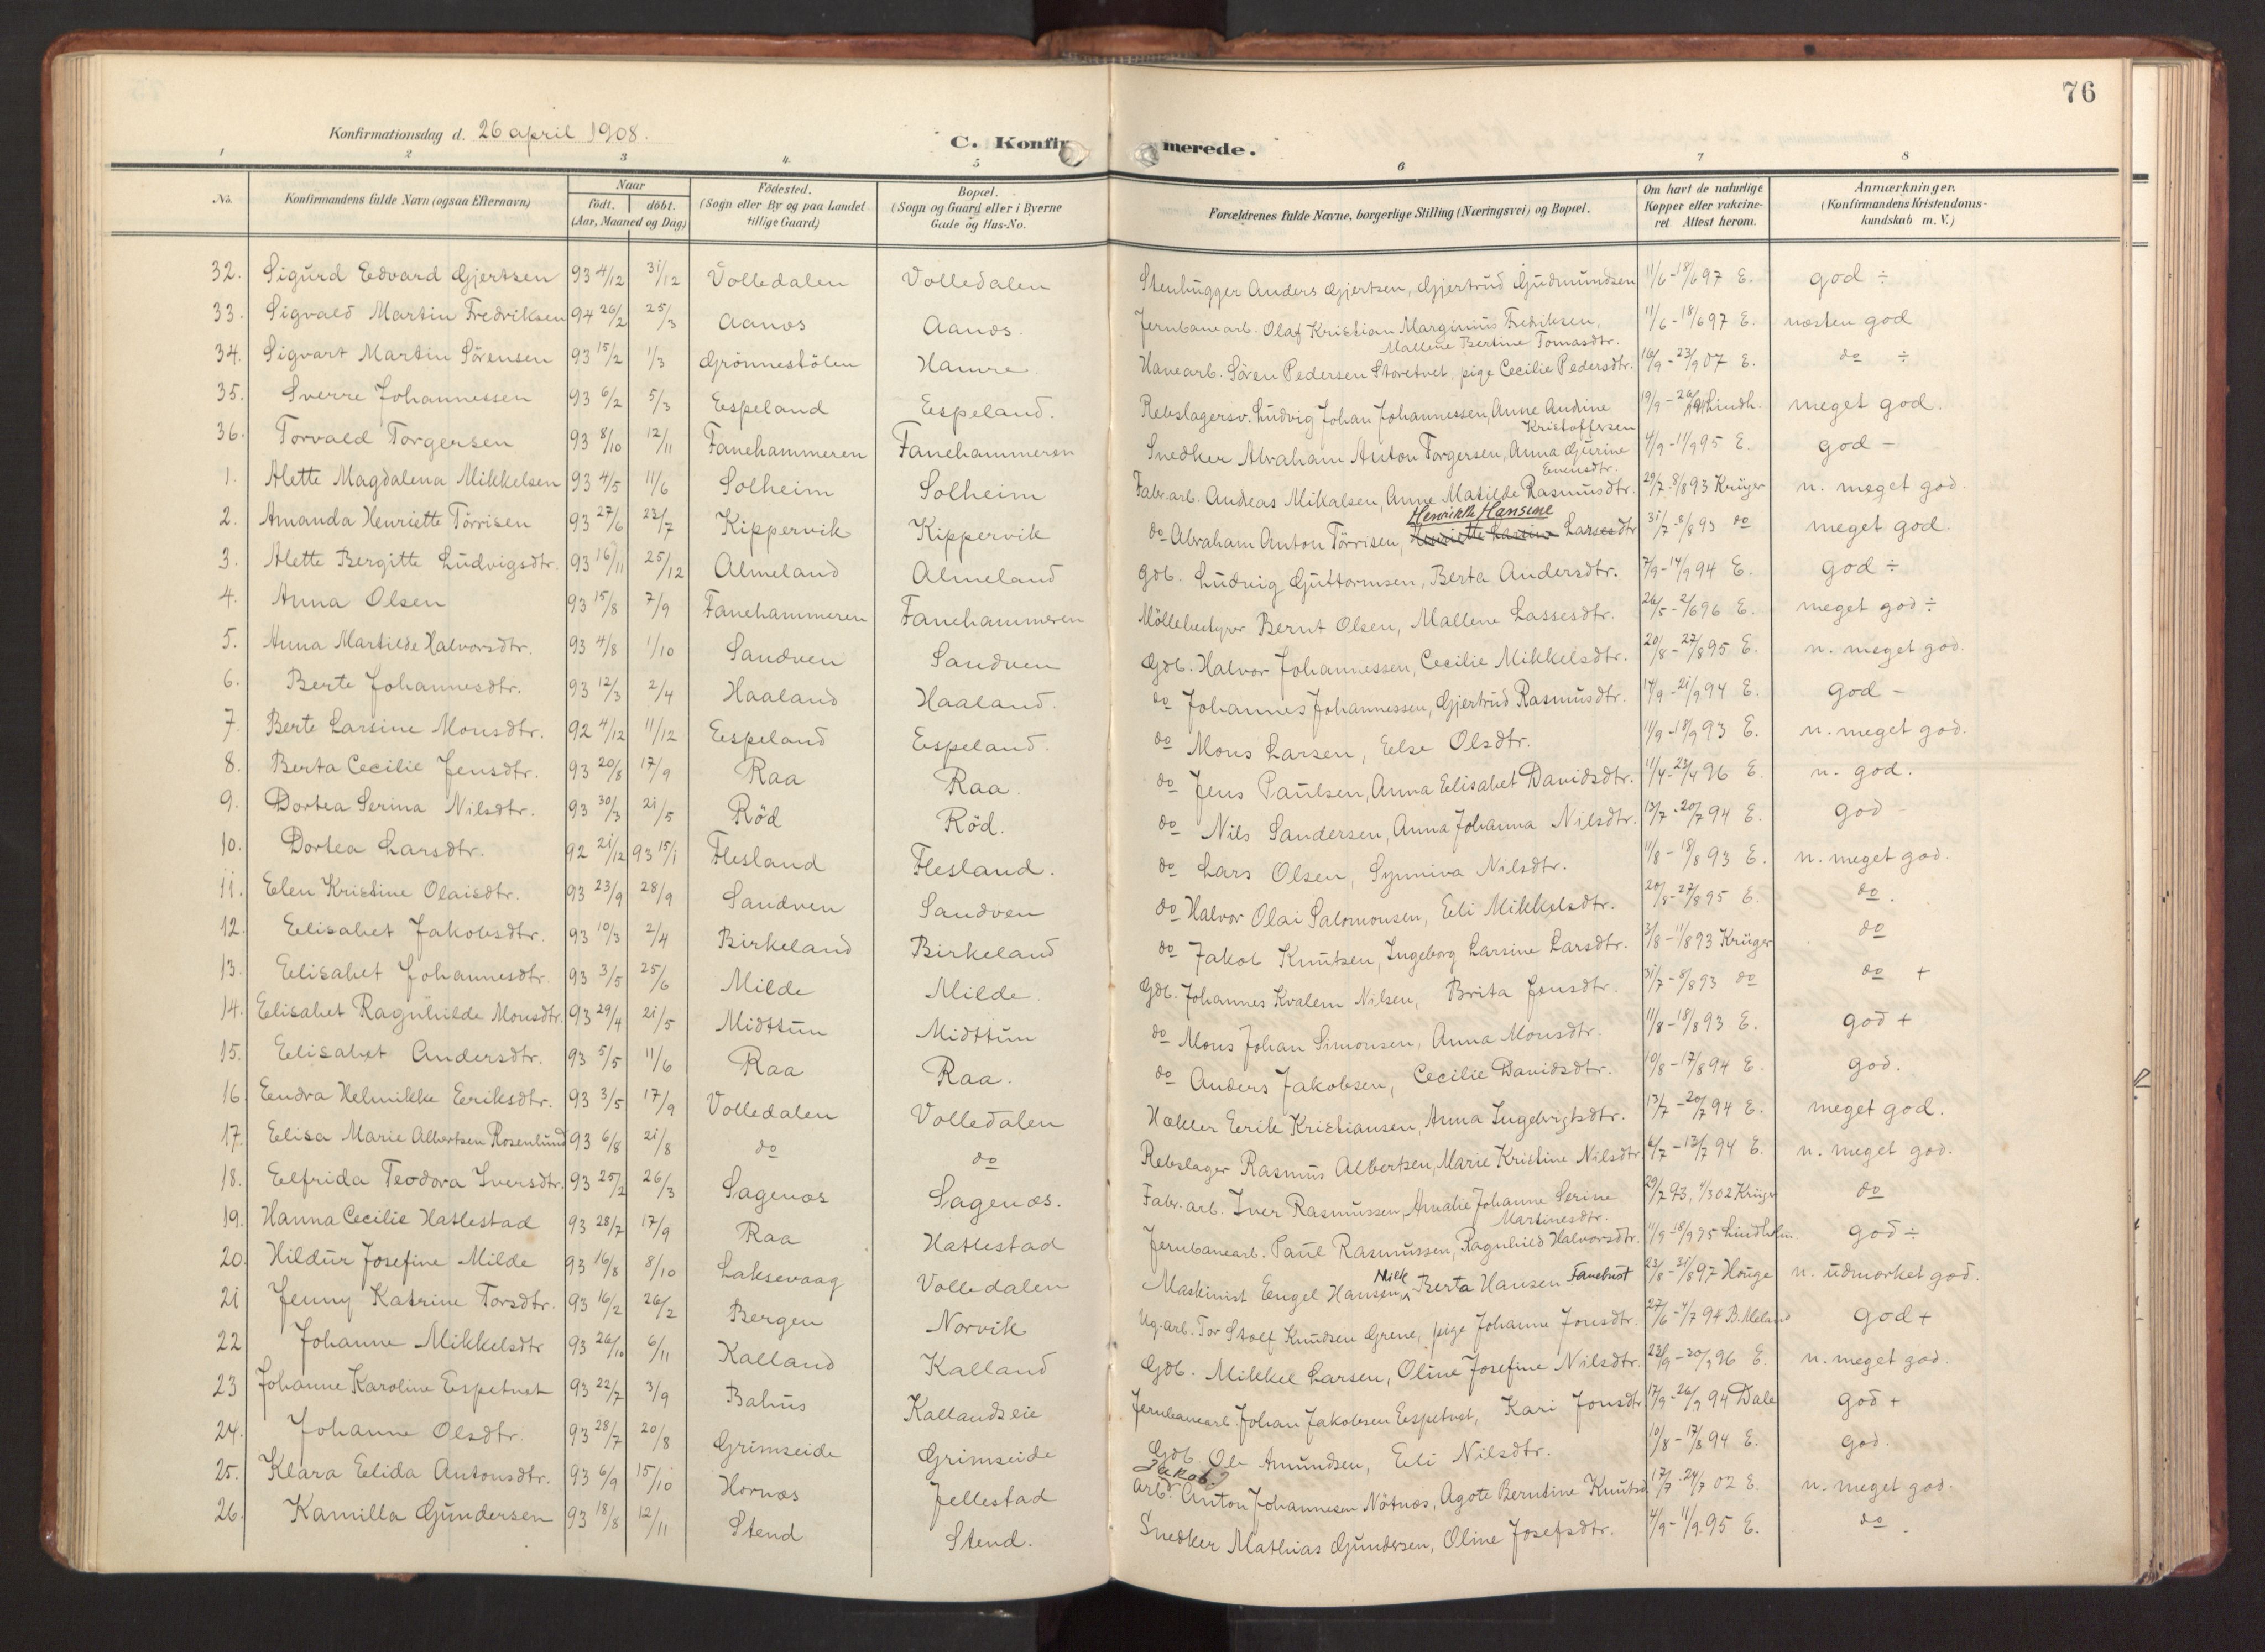 76
Konfirmationsdag d. 26 april 1908.
C. Konfirmerede.
1 2 3 4. 5 6 7 8
No. Konfirmandens fulde Navn (ogsaa Efternavn) Naar födt. döbt. (Aar, Maaned og Dag) Födested. (Sogn eller By og paa Landet tillige Gaard) Bopæl. (Sogn og Gaard eller i Byerne Gade og Hus-No. Forældrenes fulde Navne, borgerlige Stilling (Næringsvei) og Bopæl. Om havt de naturlige Kopper eller vakcineret. Attest herom. Anmærkninger. (Konfirmandens Kristendomskundskab m. V.)
32. Sigurd Edvard Gjertsen 93 4/12 31/12 Volledalen Volledalen Stenhugger Anders Gjertsen, Gjertrud Gudmundsen 11/6-18/6 97 E. god ÷
33. Sigvald Martin Fredriksen 94 26/2 25/3 Aanæs Aanæs. Jernbanearb. Olaf Kristian Marginius Fredriksen, Mallene Bertine Tomasdtr. 11/6-18/6 97 E. næsten god
34. Sigvart Martin Sörensen 93 15/2 1/3 Grönnestölen Hamre Havnearb. Sören Pedersen Storetvet, pige Cecilie Pedersdtr. 16/9-23/9 07 E. do ÷
35. Sverre Johannessen 93 6/2 5/3 Espeland Espeland. Rebslagersv. Ludvig Johan Johannessen, Anne Andine Kristoffersen 19/9-26/9 Lindh. meget god.
36. Torvald Torgersen 93 8/10 12/11 Fanehammeren Fanehammeren Snedker Abraham Anton Torgersen, Anna Gurine Evensdtr. 4/9-11/9 95 E. god -
1. Alette Magdalena Mikkelsen 93 4/5 11/6 Solheim Solheim Fabr.arb. Andreas Mikalsen, Anne Matilde Rasmusdtr. 29/7-8/8 93 Krüger n. meget god.
2. Amanda Henriette Törrisen 93 27/6 23/7 Kippervik Kippervik do Abraham Anton Törrisen, Henrikke Hansine Larsesdtr 31/7-8/8 93 do meget god.
3. Alette Bergitte Ludvigsdtr. 93 16/11 25/12 Almeland Almeland Gdb. Ludvig Guttormsen, Berta Andersdtr. 7/9-14/9 94 E. god ÷
4. Anna Olsen 93 15/8 7/9 Fanehammeren Fanehammeren Möllebestyrer Bernt Olsen, Mallene Lassesdtr. 26/5-2/6 96 E. meget god ÷
5. Anna Martilde Halvorsdtr. 93 4/8 1/10 Sandven Sandven Gdb. Halvor Johannessen, Cecilie Mikkelsdtr. 20/8-27/8 95 E. n. meget god.
6. Berte Johannesdtr. 93 12/3 2/4 Haaland Haaland. do Johannes Johannessen, Gjertrud Rasmusdtr. 14/9-21/9 94 E. god -
7. Berte Larsine Monsdtr. 92 4/12 11/12 Espeland Espeland. do Mons Larsen, Else Olsdtr. 11/9-18/9 93 E. n. meget god.
8. Berta Cecilie Jensdtr. 93 20/8 17/9 Raa Raa. do Jens Paulsen, Anna Elisabet Davidsdtr. 11/4-23/4 96 E. n. god.
9. Dortea Serina Nilsdtr. 93 30/3 21/5 Röd Röd. do Nils Sandersen, Anna Johanna Nilsdtr. 13/7-20/7 94 E. god -
10. Dortea Larsdtr. 92 21/12 93 15/1 Flesland Flesland. do Lars Olsen, Synniva Nilsdtr. 11/8-18/8 93 E. n. meget god.
11. Elen Kristine Olaisdtr. 93 23/9 28/9 Sandven Sandven do Halvor Olai Salomonsen, Eli Mikkelsdtr. 20/8-27/8 95 E. do.
12. Elisabet Jakobsdtr. 93 10/3 2/4 Birkeland Birkeland do Jakob Knutsen, Ingeborg Larsine Larsdtr. 3/8-11/8 93 Krüger do
13. Elisabet Johannesdtr. 93 3/5 25/6 Milde Milde. Gdb. Johannes Kvalem Nilsen, Brita Jensdtr. 31/7-8/8 93 do do +
14. Elisabet Ragnhilde Monsdtr. 93 29/4 21/5 Midttun Midttun do Mons Johan Simonsen, Anna Monsdtr. 11/8-18/8 93 E. god +
15. Elisabet Andersdtr. 93 5/5 11/6 Raa Raa. do Anders Jakobsen, Cecilie Davidsdtr. 10/8-17/8 94 E. god.
16. Endra Helmikke Eriksdtr. 93 3/5 17/9 Volledalen Volledalen Hækler Erik Kristiansen, Anna Ingebrigtsdtr. 13/7-20/7 94 E. meget god.
17. Elisa Marie Albertsen Rosenlund 93 6/8 21/8 do do Rebslager Rasmus Albertsen, Marie Kristine Nilsdtr 6/7-13/7 94 E. n. meget god.
18. Elfrida Teodora Iversdtr. 93 25/2 26/3 Sagenæs Sagenæs. Fabr.arb. Iver Rasmussen, Amalie Johanne Serine Martinesdtr. 29/7 93, 4/3 02 Krüger do
19. Hanna Cecilie Hatlestad 93 28/7 17/9 Raa Hatlestad Jernbanearb. Paul Rasmussen, Ragnhild Halvorsdtr. 11/9-18/9 95 Lindholm. god ÷
20. Hildur Josefine Milde 93 16/8 8/10 Laksevaag Volledalen Maskinist Engel Hansen Milde, Berta Hansen Fanebust 23/8-31/8 97 Houge n. udmærket god.
21 Jenny Katrine Torsdtr. 93 16/2 26/2 Bergen Norvik Ug.arb. Tor Stolf Knudsen Grene, pige Johanne Jonsdtr. 27/6-4/7 94 B. Meland god +
22 Johanne Mikkelsdtr 93 26/10 6/11 Kalland Kalland Gdb. Mikkel Larsen, Oline Josefine Nilsdtr. 23/9-30/9 96 E. n. meget god.
23 Johanne Karoline Espetvet 93 22/7 3/9 Bahus Kallandseie Jernbanearb. Johan Jakobsen Espetvet, Kari Jonsdtr 17/9-26/9 94 Dale god +
24. Johanne Olsdtr. 93 28/7 20/8 Grimseide Grimseide Gdb Ole Amundsen, Eli Nilsdtr. 10/8-17/8 94 E. god.
25. Klara Elida Antonsdtr. 93 6/9 15/10 Hornæs Jellestad Arbd. Jakob? Anton Johannesen Nötnæs, Agote Berntine Knutsd. 17/7-24/7 02 E. n. meget god.
26. Kamilla Gundersen 93 18/8 12/11 Stend Stend. Snedker Mathias Gundersen, Oline Josefsdtr. 4/9-11/9 95 E. do.